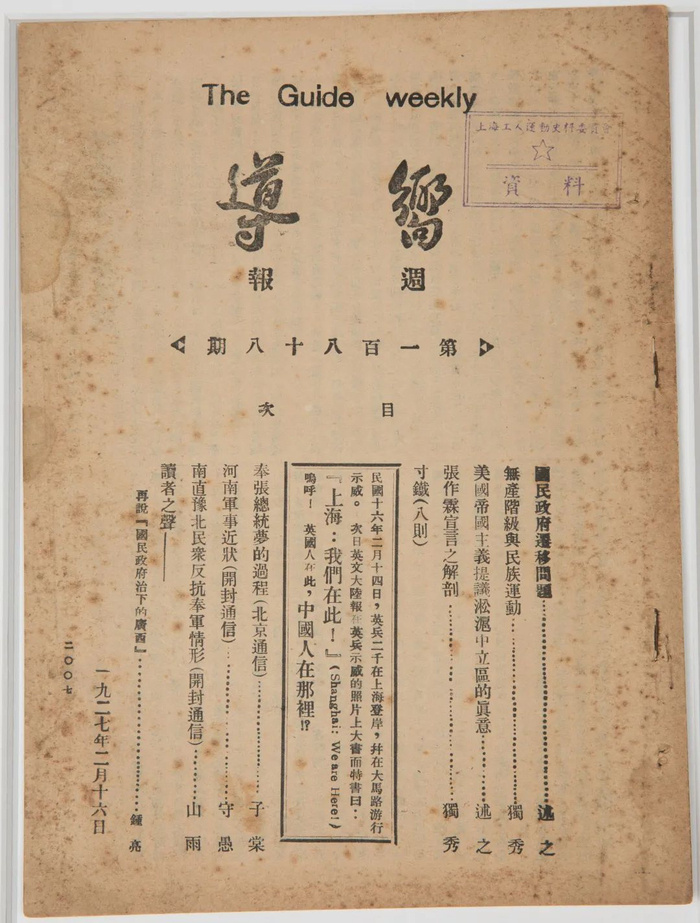 The Guide weekly
嚮導
週報
第一百八十八期
目次
國民政府遷移問題……述之
無產階級與民族運動……獨秀
美國帝國主義提議淞滬中立區的眞意……述之
張作霖宣言之解剖……獨秀
寸鐵(八則)
民國十六年二月十四日,英兵二千在上海登岸,幷在大馬路游行
示威。次日英文大陸報在英兵示威的照片上大書而特書曰:
『上海:我們在此!』(Shanghai: We are Here!)
嗚呼!英國人在此,中國人在那裡!?
奉張總統夢的過程(北京通信)……子棠
河南軍事近狀(開封通信)……守愚
南直豫北民衆反抗奉軍情形(開封通信)……山雨
讀者之聲——
再說『國民政府治下的廣西』……鍾亮
一九二七年二月十六日
二〇〇七
上海工人運動史料委員會
資料